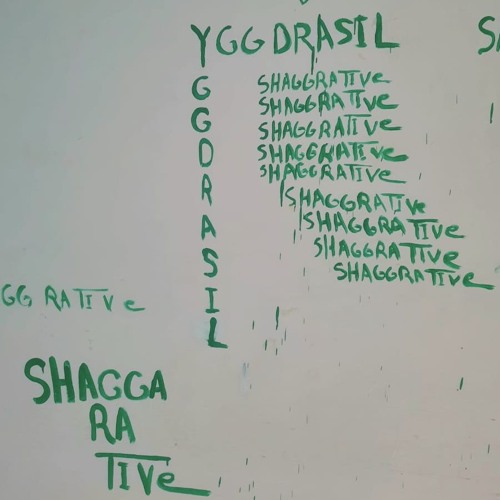 YGGDRASIL
SA
G
G
D
R
A
S
I
L
SHAGGRATIVe
SHAGGRATIVe
SHAGGRATIVe
SHAGGRATIVe
SHAGGRATIVe
SHAGGRATIVe
SHAGGRATIVe
SHAGGRATIVe
SHAGGRATIVe
GG RATIVe
SHAGGA
RA
TIVe